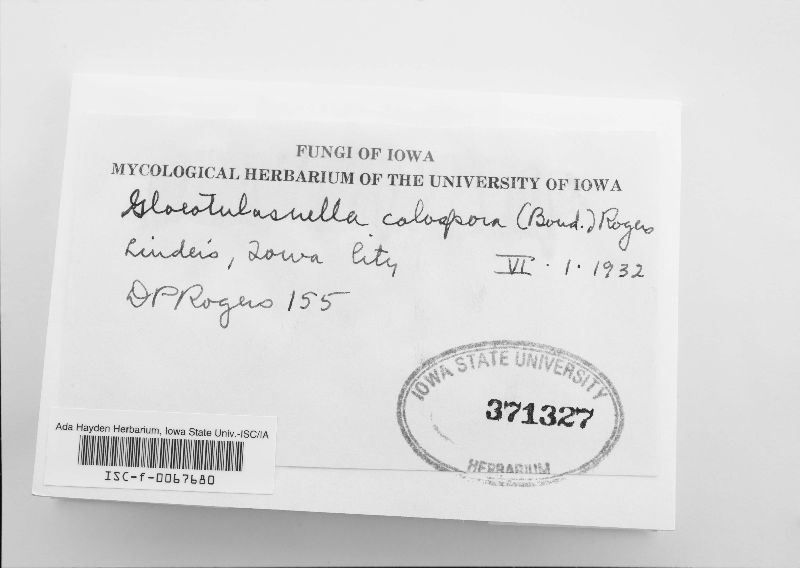 FUNGI OF IOWA
MYCOLOGICAL HERBARIUM OF THE UNIVERSITY OF IOWA
Gloeotulasnella calospora (Boud.) Rogers
Linder's, Iowa City VI · 1 · 1932
DPRogers 155
IOWA STATE UNIVERSITY
371327
HERBARIUM
Ada Hayden Herbarium, Iowa State Univ.-ISC/IA
ISC-f-0067680